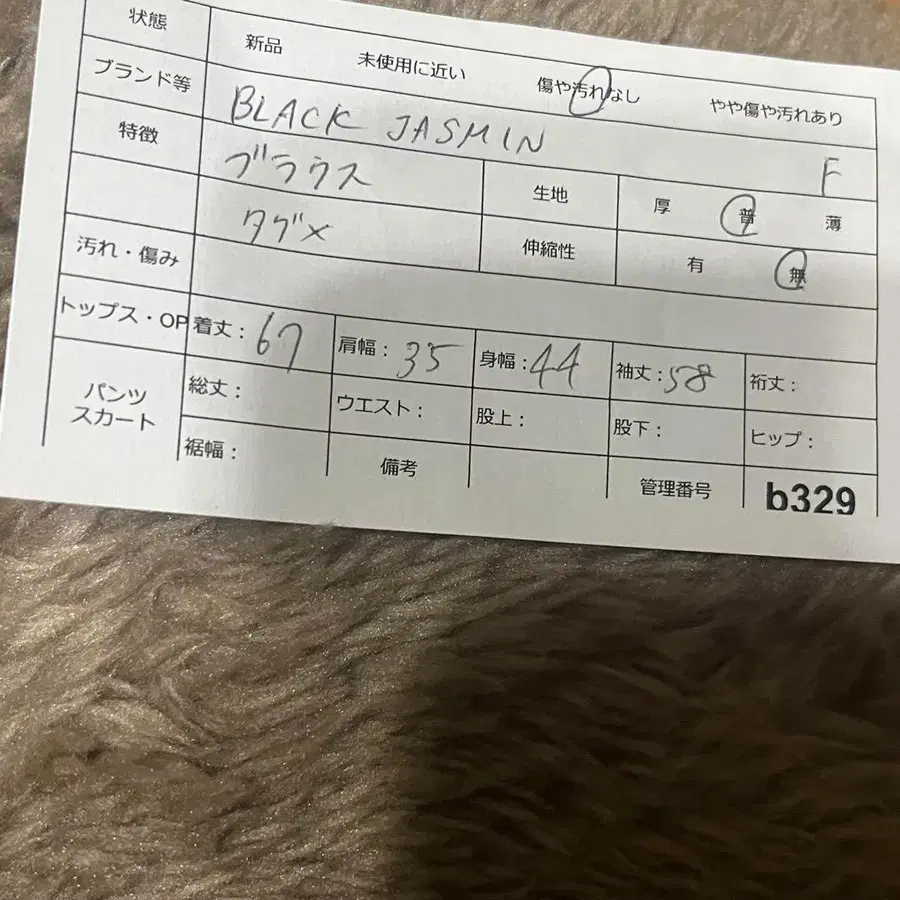 状態 新品 未使用に近い 傷や汚れなし やや傷や汚れあり
ブランド等 BLACK JASMIN F
特徴 ブラウス 生地 厚 普 薄
タグメ 伸縮性 有 無
汚れ・傷み
トップス・OP 着丈：67 肩幅：35 身幅：44 袖丈：58 裄丈：
パンツ スカート 総丈： ウエスト： 股上： 股下： ヒップ：
裾幅： 備考 管理番号 b329